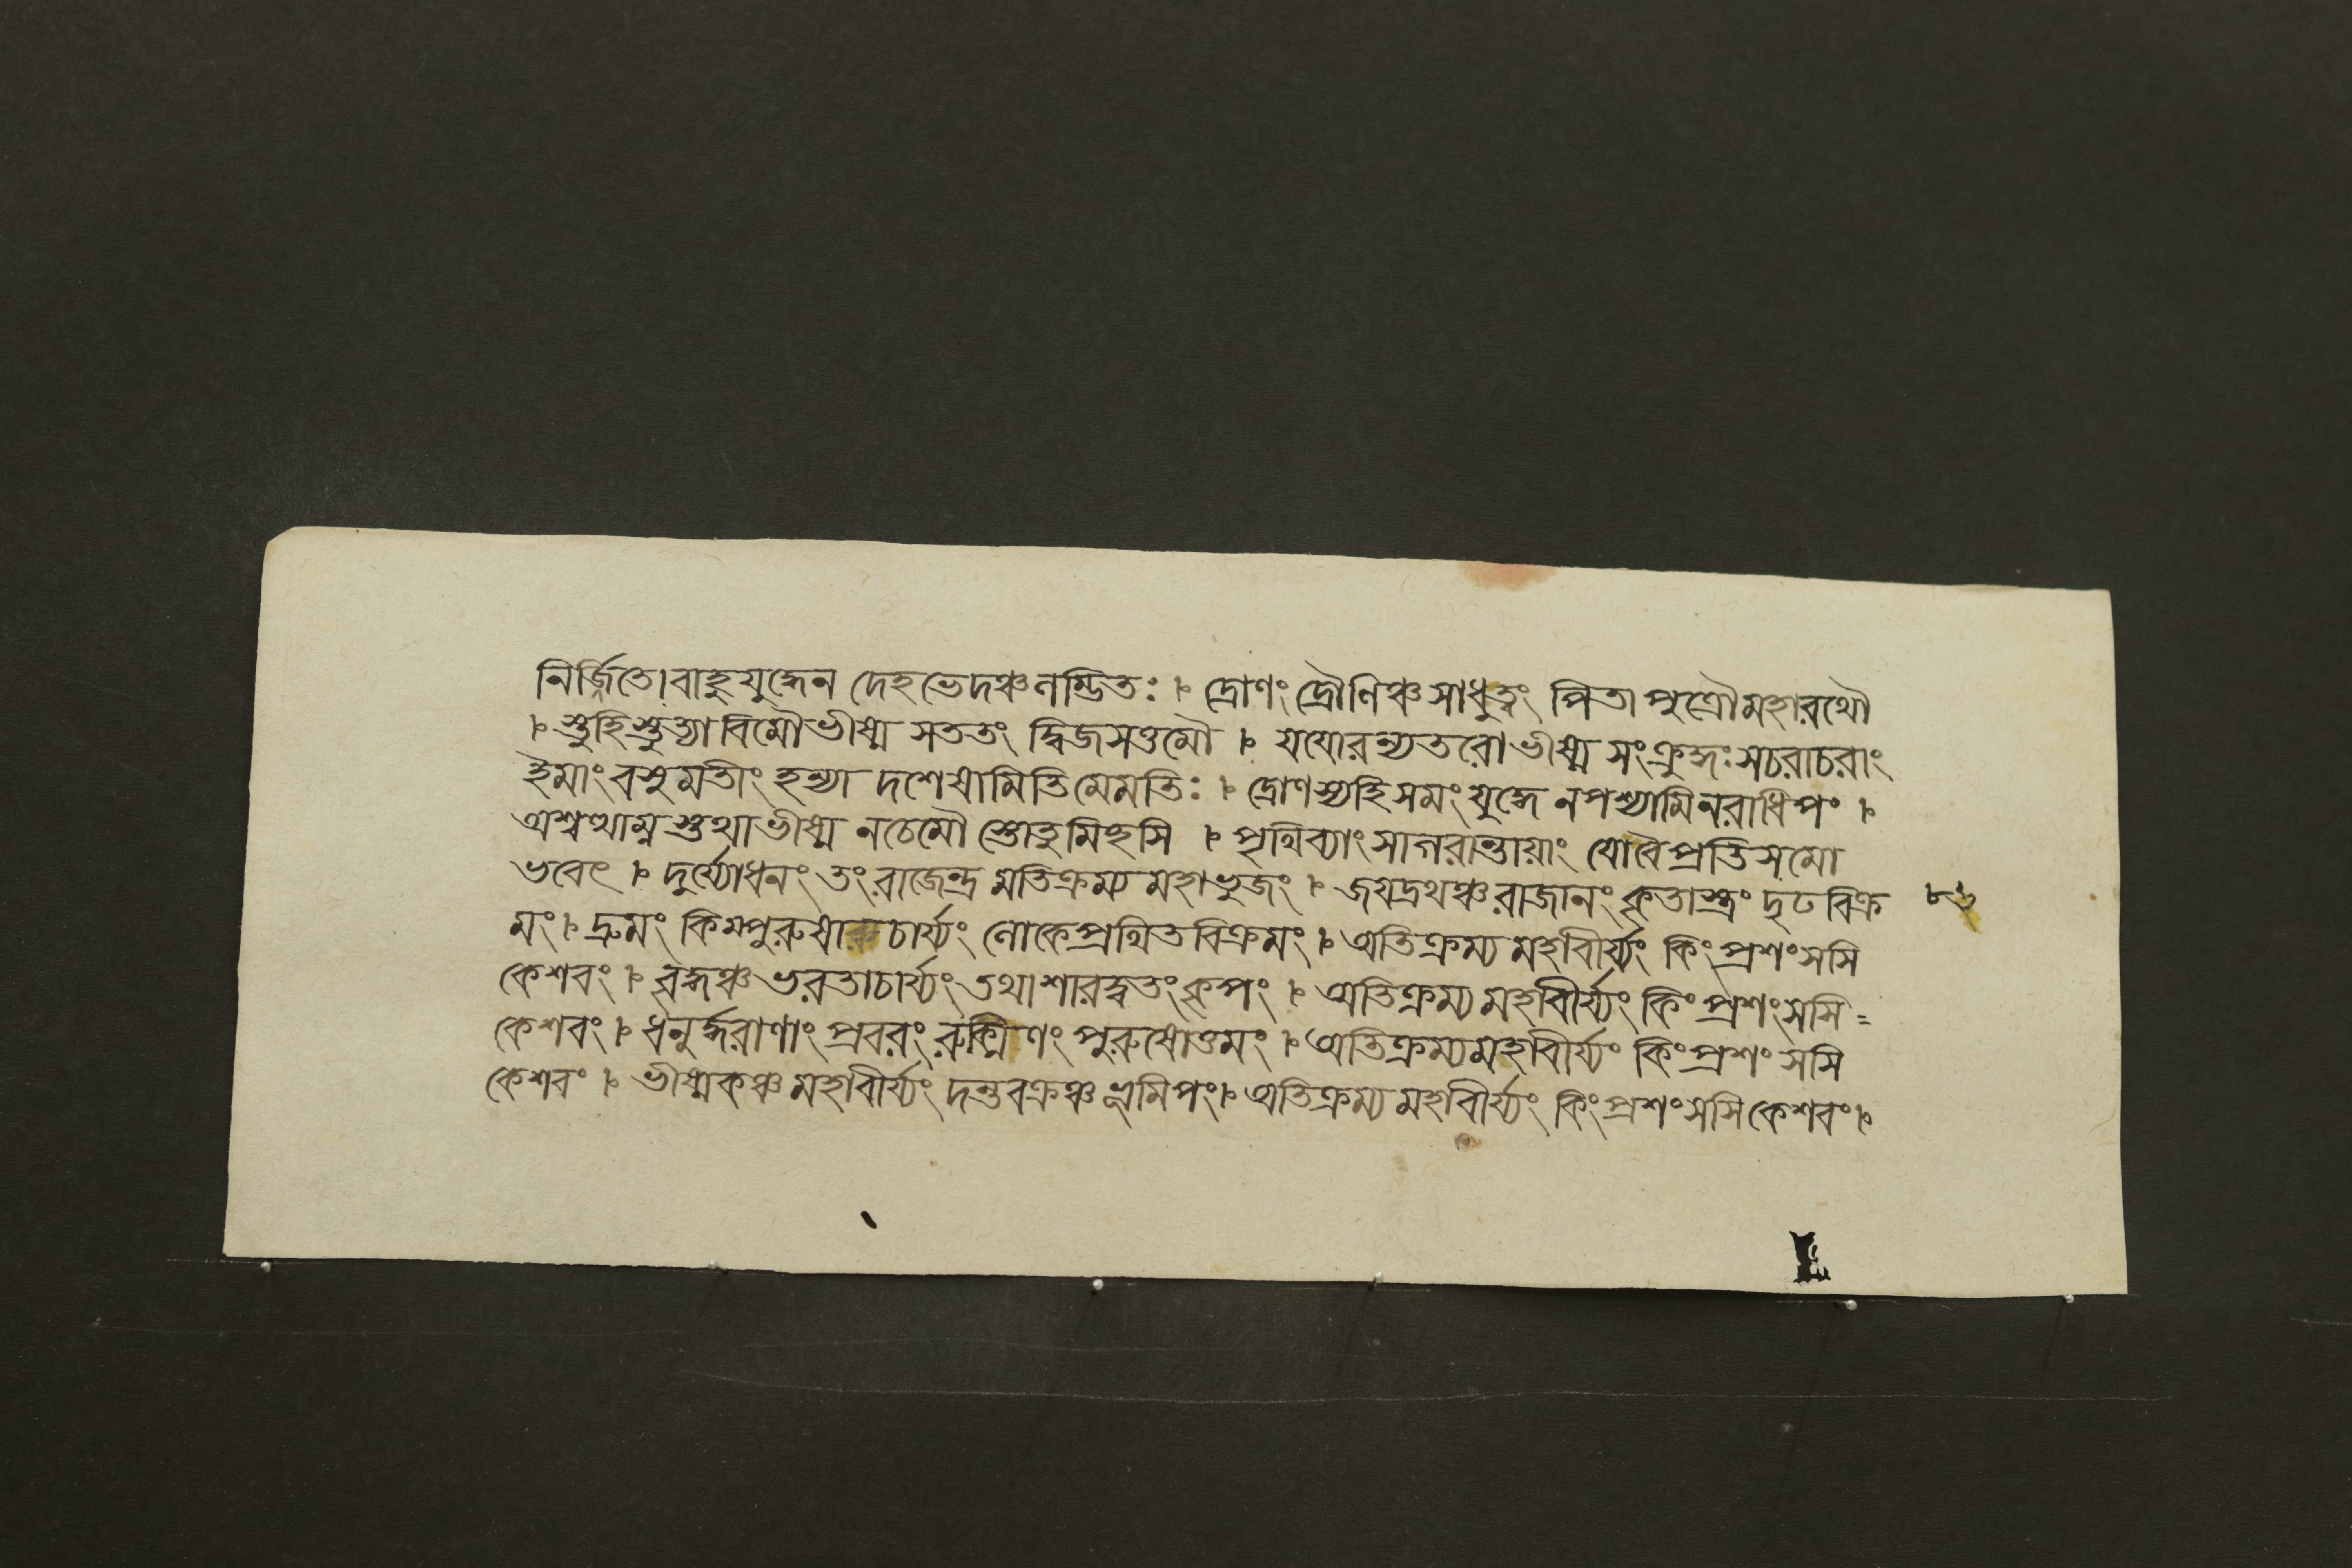 নির্জিতো বাহুযুদ্ধেন দেহভেদঞ্চলম্ভিতঃ ৷ দ্রোণং দ্রৌণিঞ্চসাধুত্বং পিতাপুত্রৌমহারথৌ
৷ স্তুহিস্তুত্যাবিমৌভীষ্ম সততং দ্বিজসত্তমৌ ৷ যযোরন্যতরোভীষ্ম সংক্রুদ্ধঃ সচরাচরাং
ইমাং বসুমতীং হন্যা দশেষামিতিমেমতিঃ ৷ দ্রোণস্যহিসমং যুদ্ধে নপশ্যামিনরাধিপং ৷
অশ্বত্থাম্নস্তথাভীষ্ম নচেমৌ স্তোতুমিহসি ৷ পৃথিব্যাং সাগরান্তায়াং যোবৈপ্রতিসমো
ভবেৎ ৷ দুর্য্যোধনং তং রাজেন্দ্র মতিক্রম্য মহাভুজং ৷ জযদ্রথঞ্চরাজানং কৃতাস্ত্রং দৃঢবিক্র ৮৬
মং ৷ দ্রুমং কিম্পুরুষাচার্য্যং লোকেপ্রথিতবিক্রমং ৷ অতিক্রম্য মহাবীর্য্যং কিং প্রশংসসি
কেশবং ৷ বৃদ্ধঞ্চ ভরতাচার্য্যং তথাশারদ্বতং কৃপং ৷ অতিক্রম্য মহাবীর্য্যং কিং প্রশংসসি =
কেশবং ৷ ধনুর্দ্ধরাণাং প্রবরং রুক্মিণং পুরুষোত্তমং ৷ অতিক্রম্যমহাবীর্য্যং কিং প্রশংসসি
কেশবং ৷ ভীষ্মকঞ্চ মহাবীর্য্যং দন্তবক্রঞ্চ ভূমিপং ৷ অতিক্রম্য মহাবীর্য্যং কিং প্রশংসসি কেশবং ৷